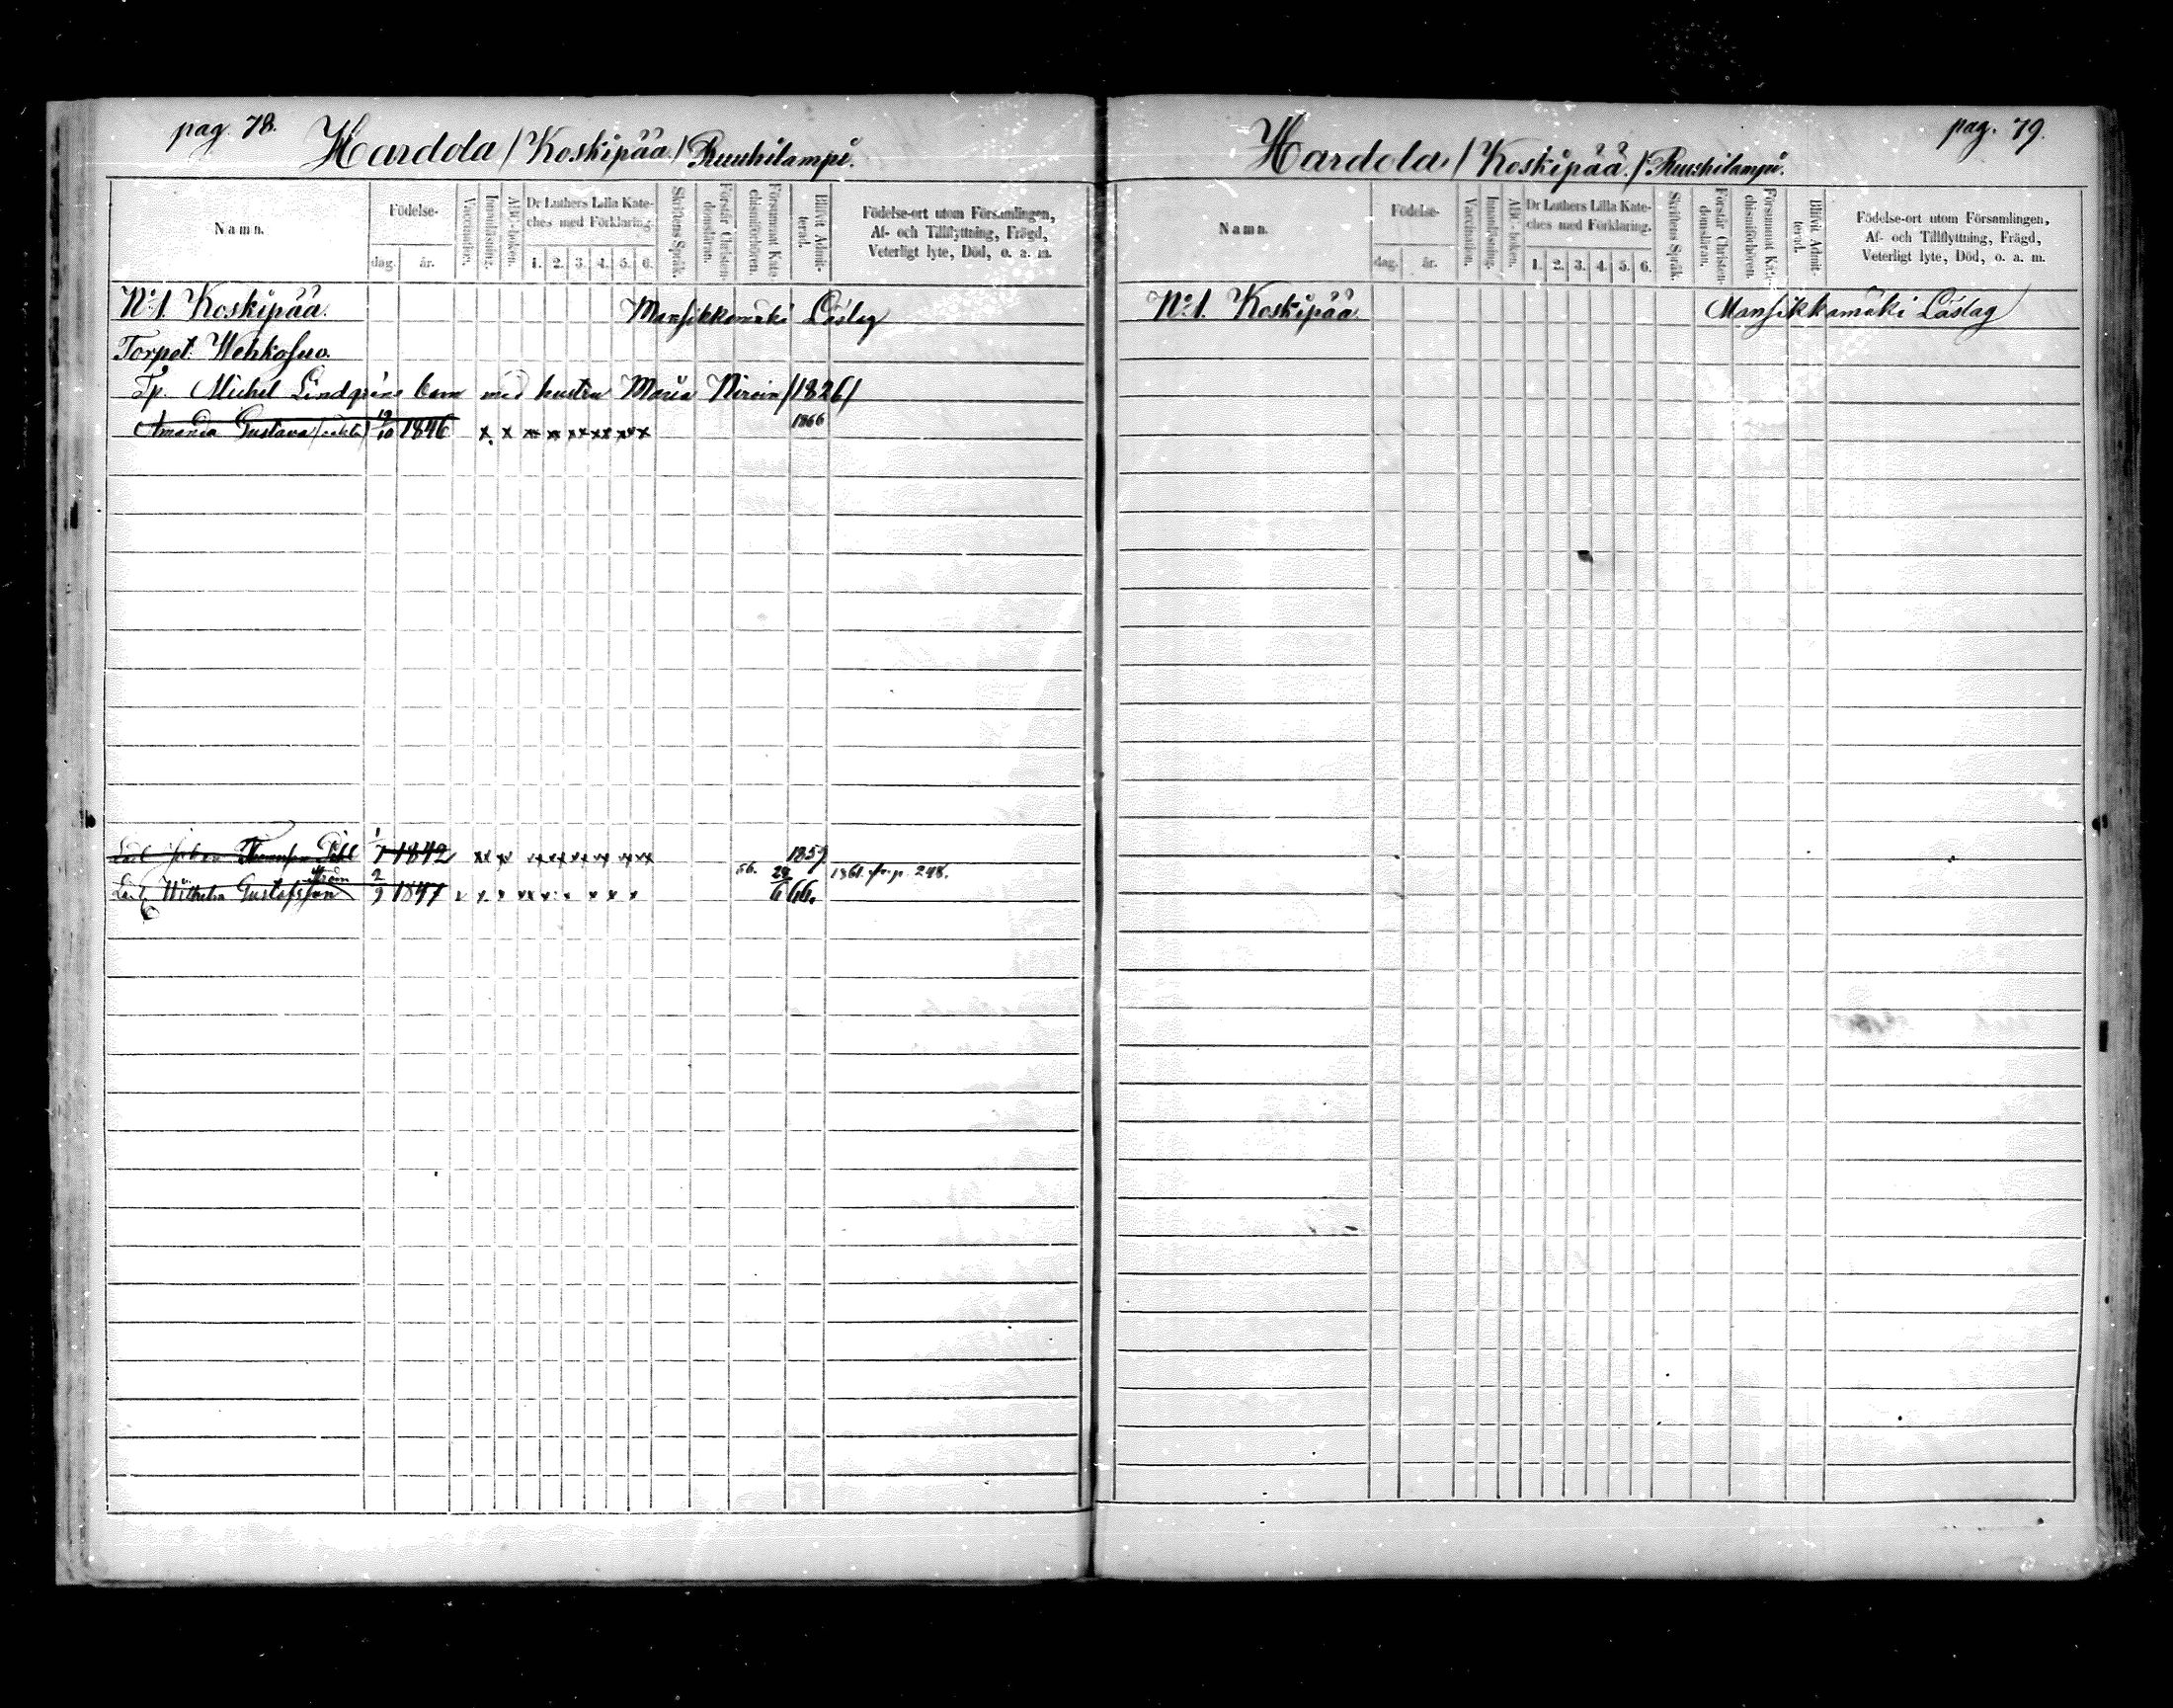 pag. 78.
Hardola / Koskipää. / Ruuhilampi.
Namn.
Födelse-
dag.
år.
Vaccination.
Innanläsning.
ABC-boken.
Dr Luthers Lilla Kate-
ches med Förklaring.
1. 2. 3. 4. 5. 6.
Skriftens Språk.
Förstår Christen-
domsläran.
Försummat Kate-
chismiförhören.
Blifvit Admit-
terad.
Födelse-ort utom Församlingen,
Af- och Tillflyttning, Frägd,
Veterligt lyte, Död, o. a. m.
No 1. Koskipää. Mansikkamäki Läslag
Torpet Wehkosuo.
Tp. Michel Lindgrens barn med hustru Maria /1826/
Amanda Gustava 19/10 1846 x x x x x x x x x x x x 1866
Carl Johan Dahl 1/7 1842 x x x x x x x x x x 1859
Carl Wilhelm Gustafsson 2/9 1847 56. 24/6 66. 1861 fr. p. 248.
pag. 79.
Hardola / Koskipää / Ruuhilampi.
Namn.
Födelse-
dag.
år.
Vaccination.
Innanläsning.
ABC-boken.
Dr Luthers Lilla Kate-
ches med Förklaring.
1. 2. 3. 4. 5. 6.
Skriftens Språk.
Förstår Christen-
domsläran.
Försummat Kate-
chismiförhören.
Blifvit Admit-
terad.
Födelse-ort utom Församlingen,
Af- och Tillflyttning, Frägd,
Veterligt lyte, Död, o. a. m.
No 1. Koskipää Mansikkamäki Läslag